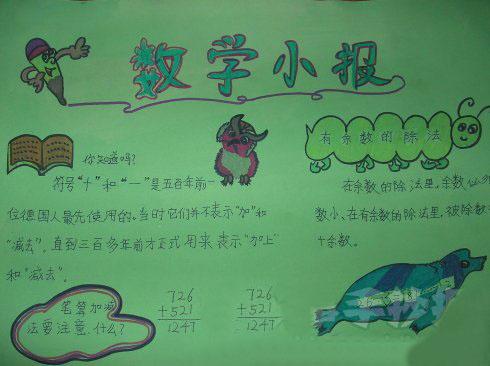 数学小报
你知道吗?
符号“十”和“一”是五百年前一
位德国人最先使用的。当时它们并不表示“加”和
“减去”。直到三百多年前才正式用来表示“加上”
和“减去”。
有余数的除法
在余数的除法里,余数
数小、在有余数的除法里,被除数
十余数。
笔算加减
法要注意什么?
726
+521
1247
726
+521
1247